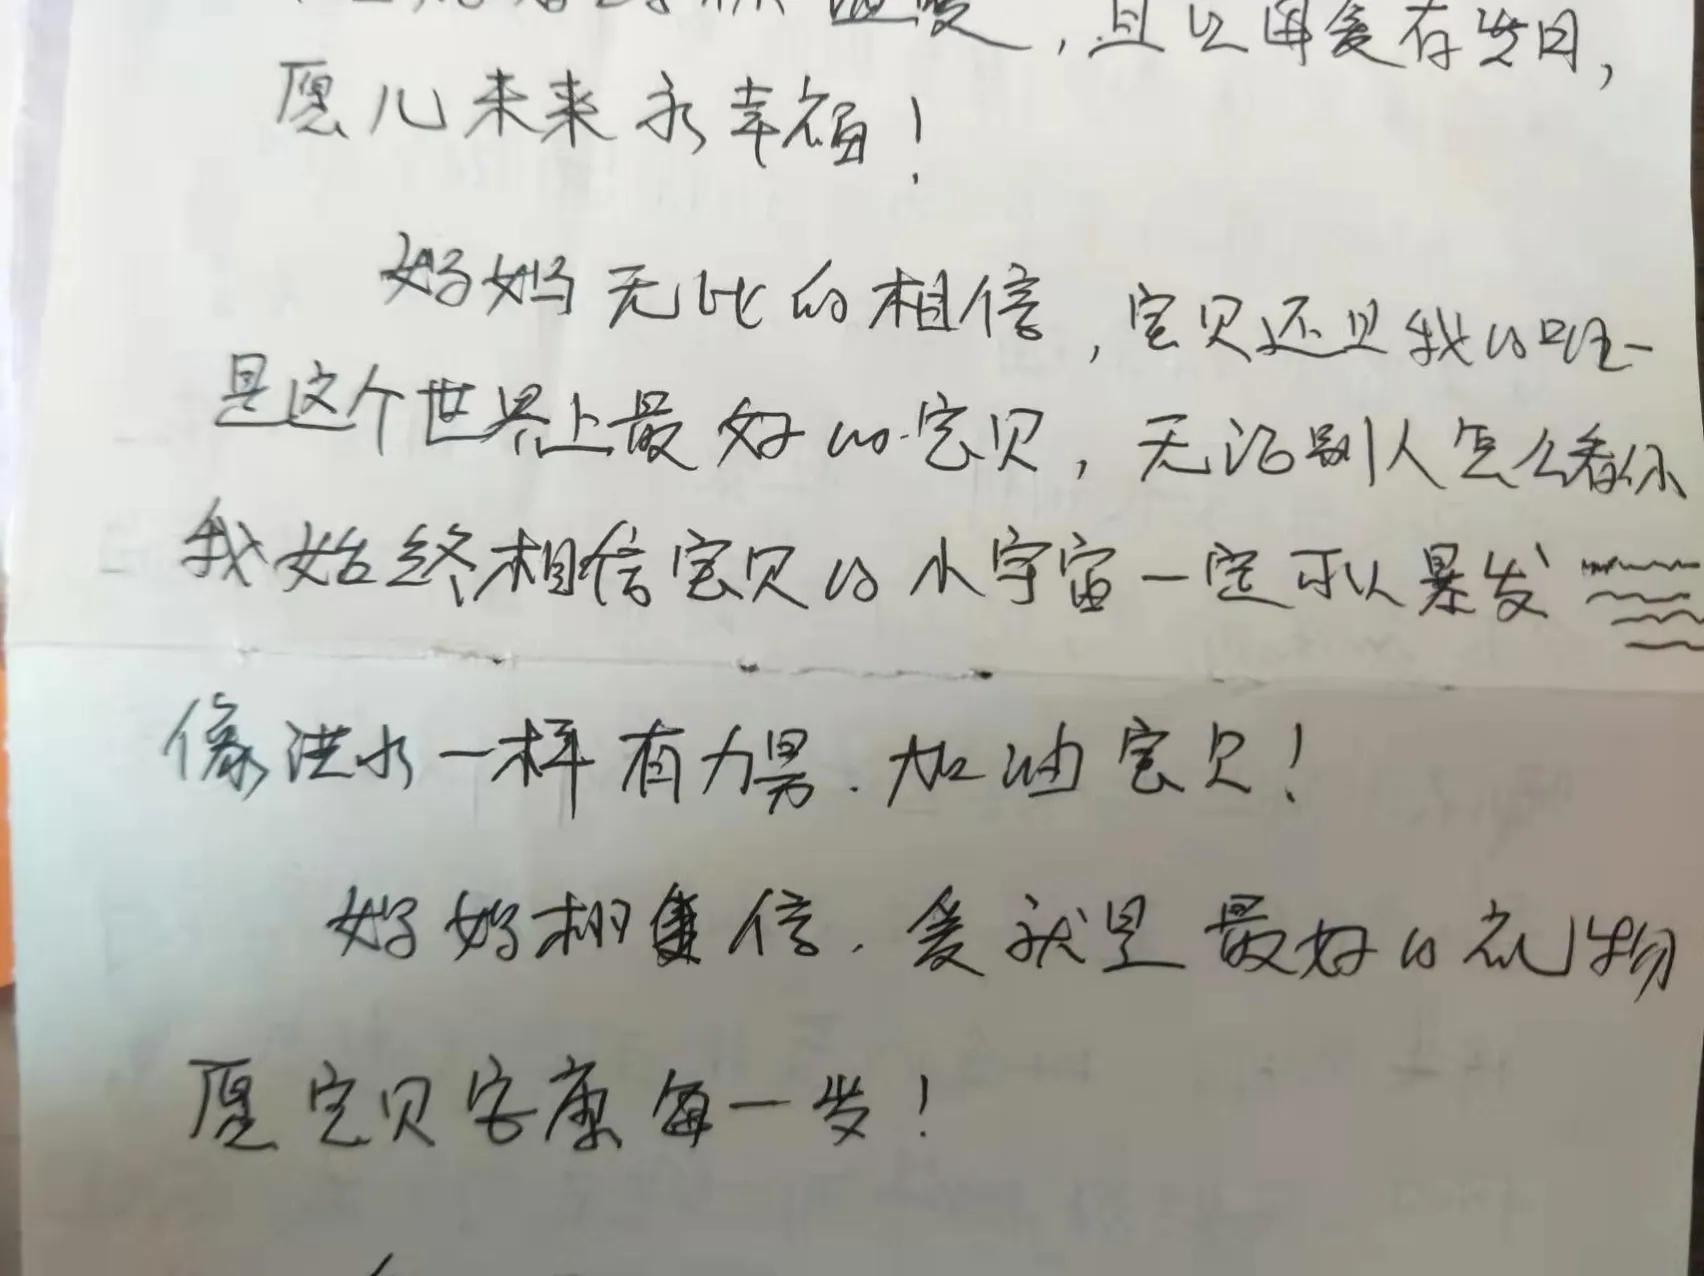 温度，且以母爱存岁日，
愿儿未来永幸福！
妈妈无比的相信，宝贝还是我的唯一
是这个世界上最好的宝贝，无论别人怎么看你
我始终相信宝贝的小宇宙一定可以暴发
像洪水一样有力男．加油宝贝！
妈妈相信．爱就是最好的礼物
愿宝贝安康每一岁！